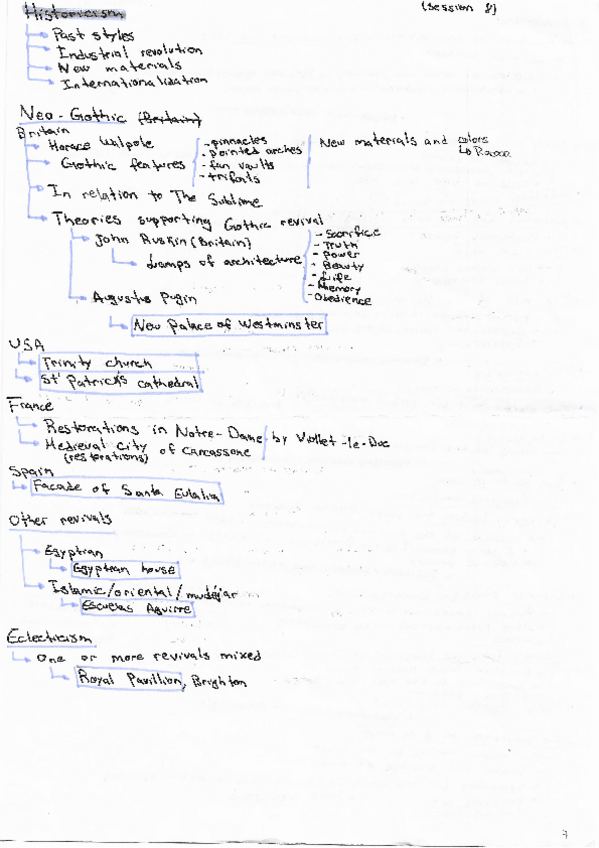 Historicism
(Session 8)
Past styles
Industrial revolution
New materials
Internationalization
Neo-Gothic (Britain)
Britain
Horace Walpole
Gothic features
- pinnacles
- pointed arches
- fan vaults
- trifonts
New materials and colors
In relation to The Sublime
Theories supporting Gothic revival
John Ruskin (Britain)
Lamps of architecture
- Sacrifice
- Truth
- Power
- Beauty
- Life
- Memory
- Obedience
Augustus Pugin
New Palace of Westminster
USA
Trinity church
St' Patrick's cathedral
France
Restorations in Notre-Dame
Medieval City of Carcassone
(restorations)
by Viollet-le-Duc
Spain
Facade of Santa Eulalia
Other revivals
Egyptian
Egyptian house
Islamic/oriental/mudéjar
Escuelas Aguirre
Eclecticism
One or more revivals mixed
Royal Pavillion, Brighton
7